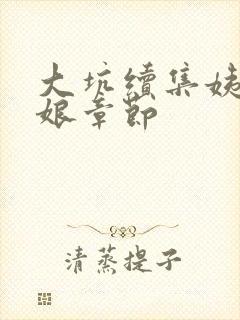 大坑續集姨
娘章節
清蒸提子